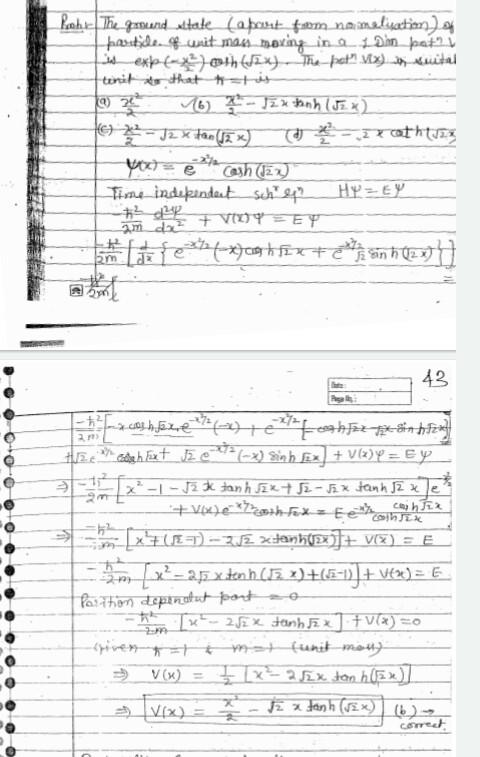 Prob:- The ground state (apart from normalisation) of
particle of unit mass moving in a 1 Dim potⁿ V
is exp(-x²/2) cosh(√2x). The potⁿ V(x) in suital
unit so that ħ=1 is
(a) x²/2 (b) x²/2 - √2 x tanh(√2x)
(c) x²/2 - √2 x tan(√2x) (d) x²/2 - √2 x coth(√2x
Ψ(x) = e^{-x²/2} cosh(√2x)
Time independent schʳ eqⁿ HΨ = EΨ
-ħ²/2m d²Ψ/dx² + V(x)Ψ = EΨ
-ħ²/2m [d/dx {e^{-x²/2} (-x) cosh √2x + e^{-x²/2} √2 sinh(√2x)}]
-ħ²/2m [
=
Date:
Page No.:
43
-ħ²/2m [-x cosh√2x. e^{-x²/2} (-x) + e^{-x²/2} [-cosh√2x - √2x sinh√2x]
+√2 e^{-x²/2} cosh√2x + √2 e^{-x²/2} (-x) sinh√2x] + V(x)Ψ = EΨ
⇒ -ħ²/2m [x² - 1 - √2 x tanh √2x + √2 - √2x tanh √2 x] e^{-x²/2}
+ V(x) e^{-x²/2} cosh√2x = E e^{-x²/2} cosh√2x/cosh√2x
⇒ -ħ²/2m [x² + (√2-1) - 2√2 x tanh(√2x)] + V(x) = E
-ħ²/2m [x² - 2√2 x tanh(√2 x) + (√2-1)] + V(x) = E
Position dependent part = 0
-ħ²/2m [x² - 2√2x tanh√2x] + V(x) = 0
Given ħ=1 & m=1 (unit mass)
⇒ V(x) = 1/2 [x² - 2√2x tanh(√2x)]
⇒ V(x) = x²/2 - √2 x tanh(√2x) (b) → correct.